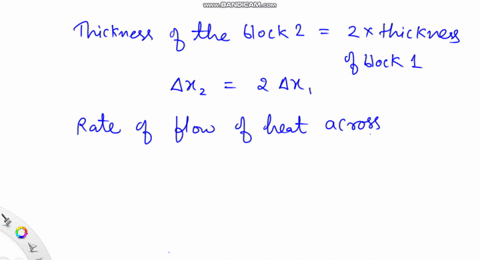 www.BANDICAM.com
Thickness of the block 2 = 2 x thickness
of block 1
Δx₂ = 2 Δx₁
Rate of flow of heat across